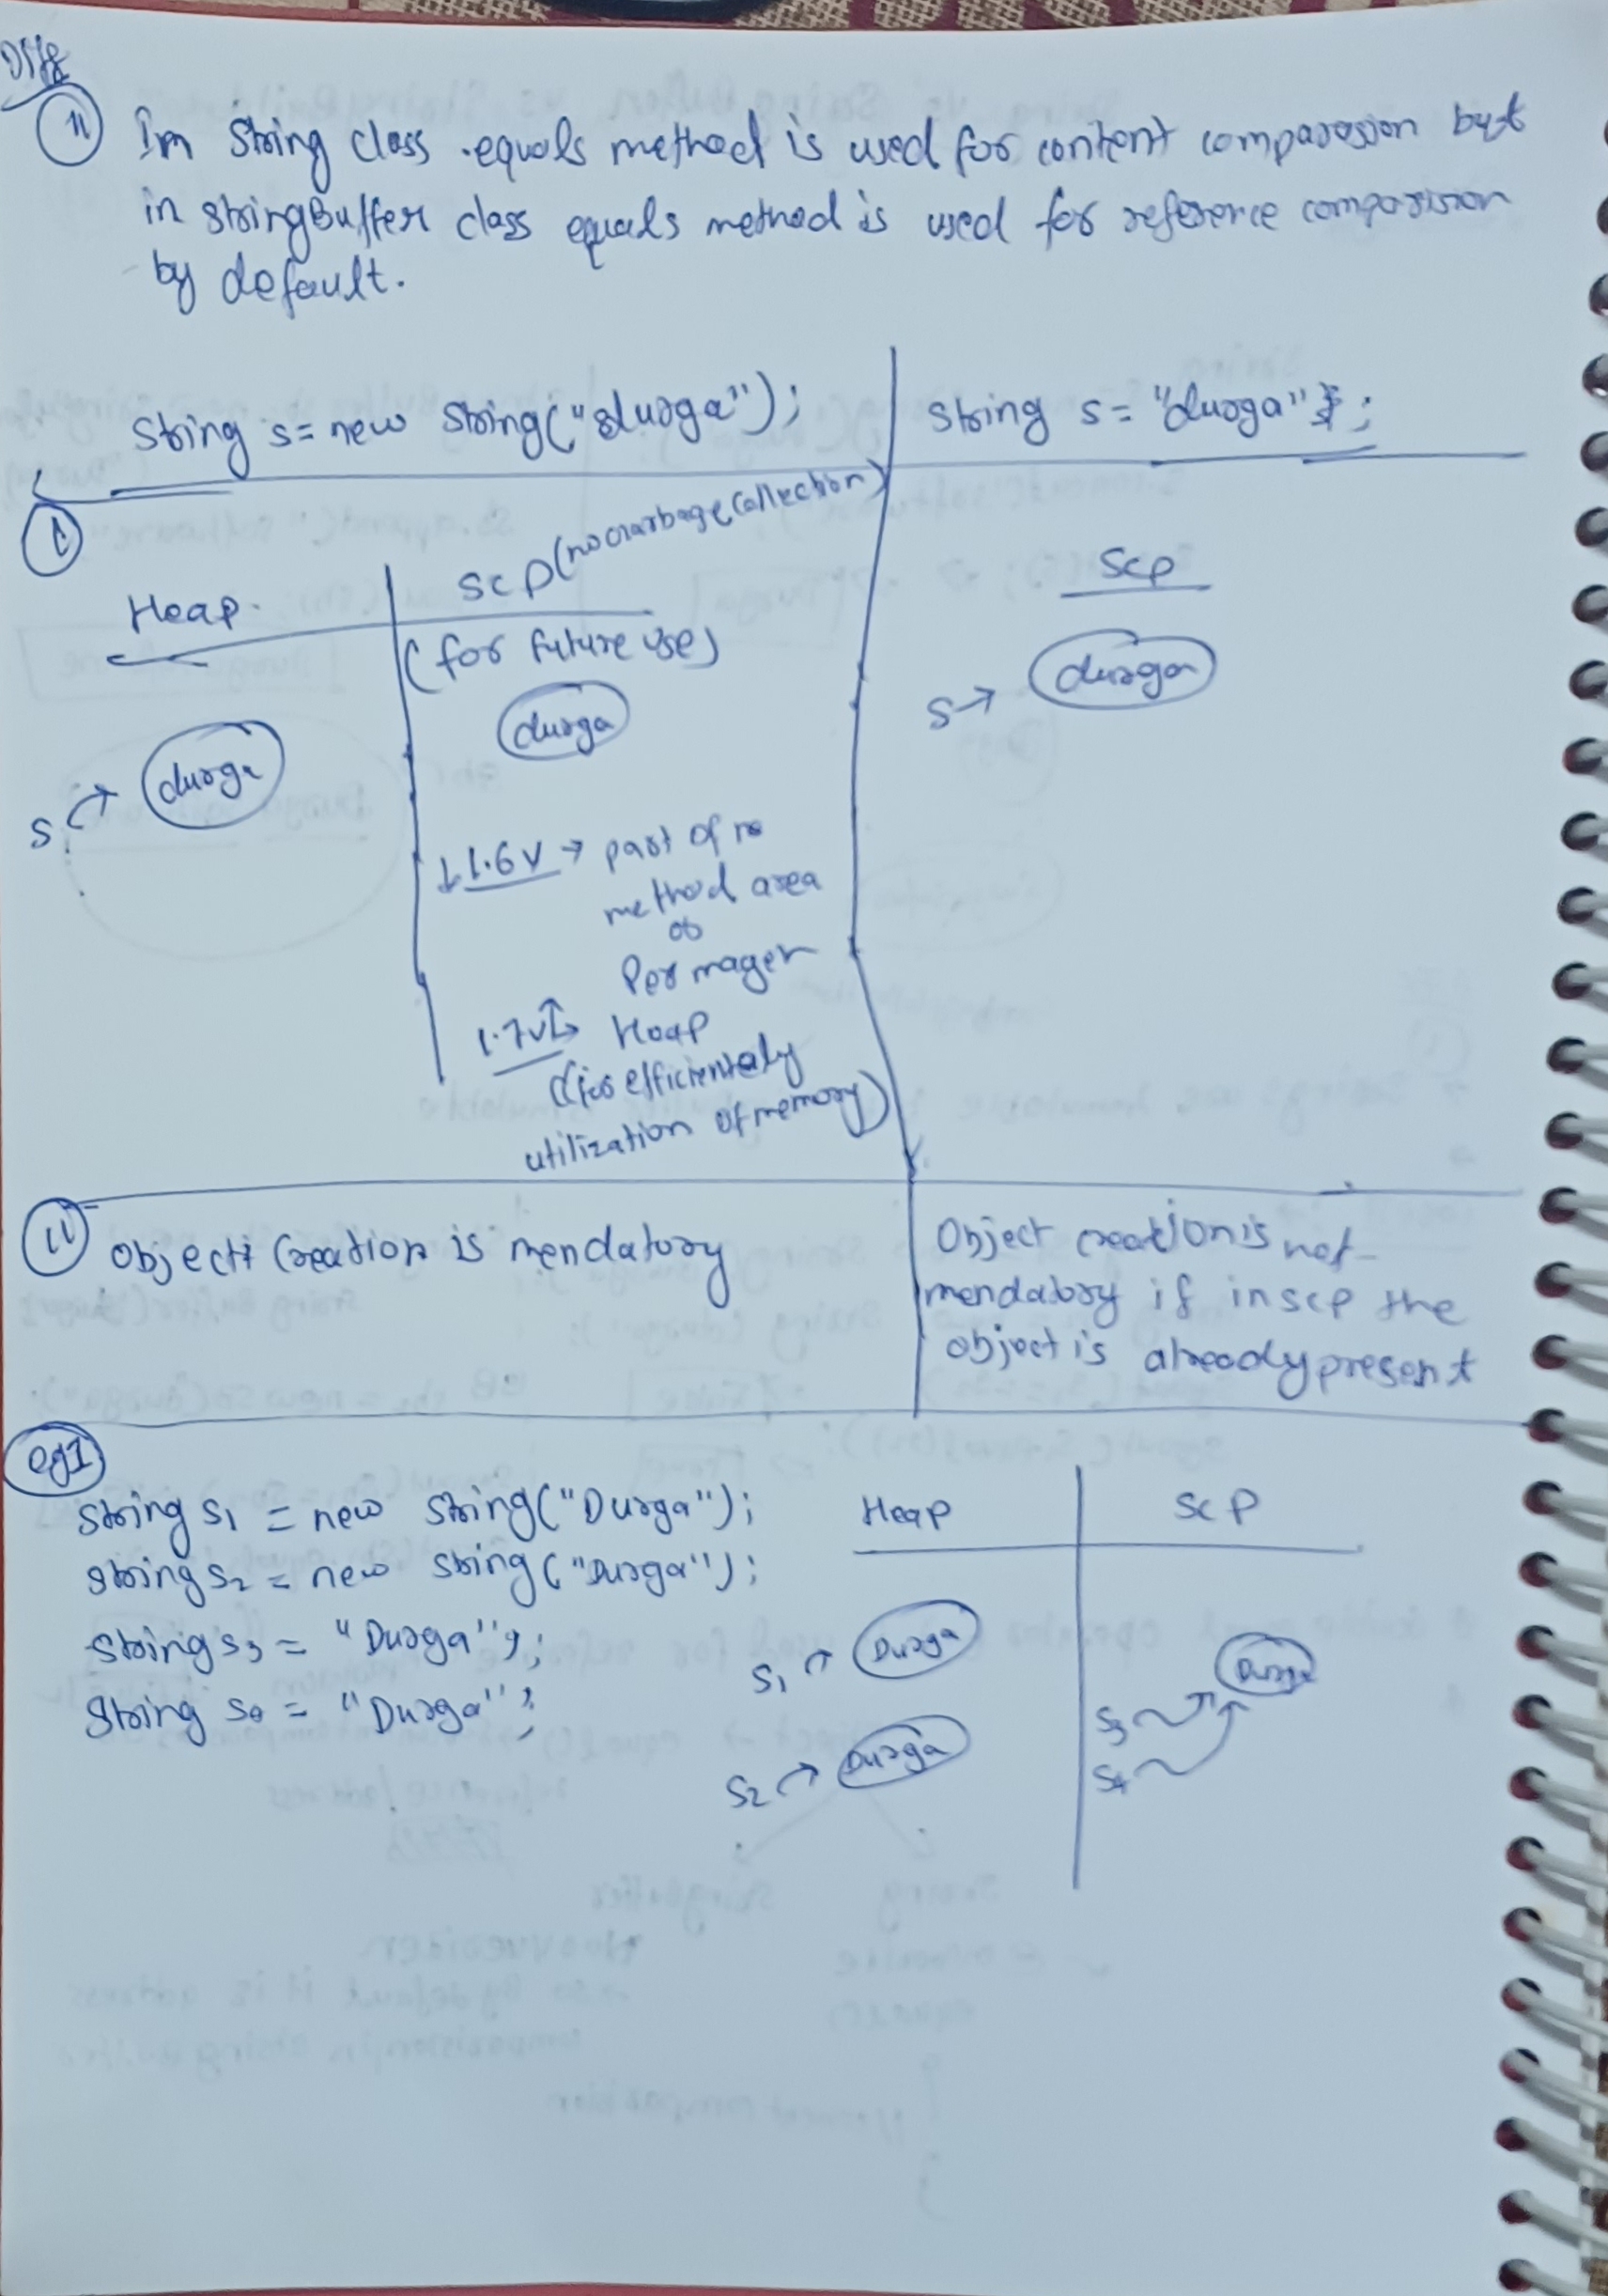 Diff
11 Im String class .equals method is used for content comparesion but
in stringBuffer class equals method is used for reference comparision
by default.
String s= new String("durga"); String s= "durga";
i
Heap SCP (no Garbage Collection) SCP
(for future use)
durga durga durga
s s
1.6V → part of
method area
or
Permagen
1.7V → Heap
(for efficiently
utilization of memory)
ii Object Creation is mendatory Object creation is not
mendatory if in scp the
object is already present
eg1
String s1 = new String("Durga"); Heap SCP
String s2 = new String("Durga");
String s3 = "Durga"; s1 Durga Durga
String = "Durga"; s3
s2 Durga s4